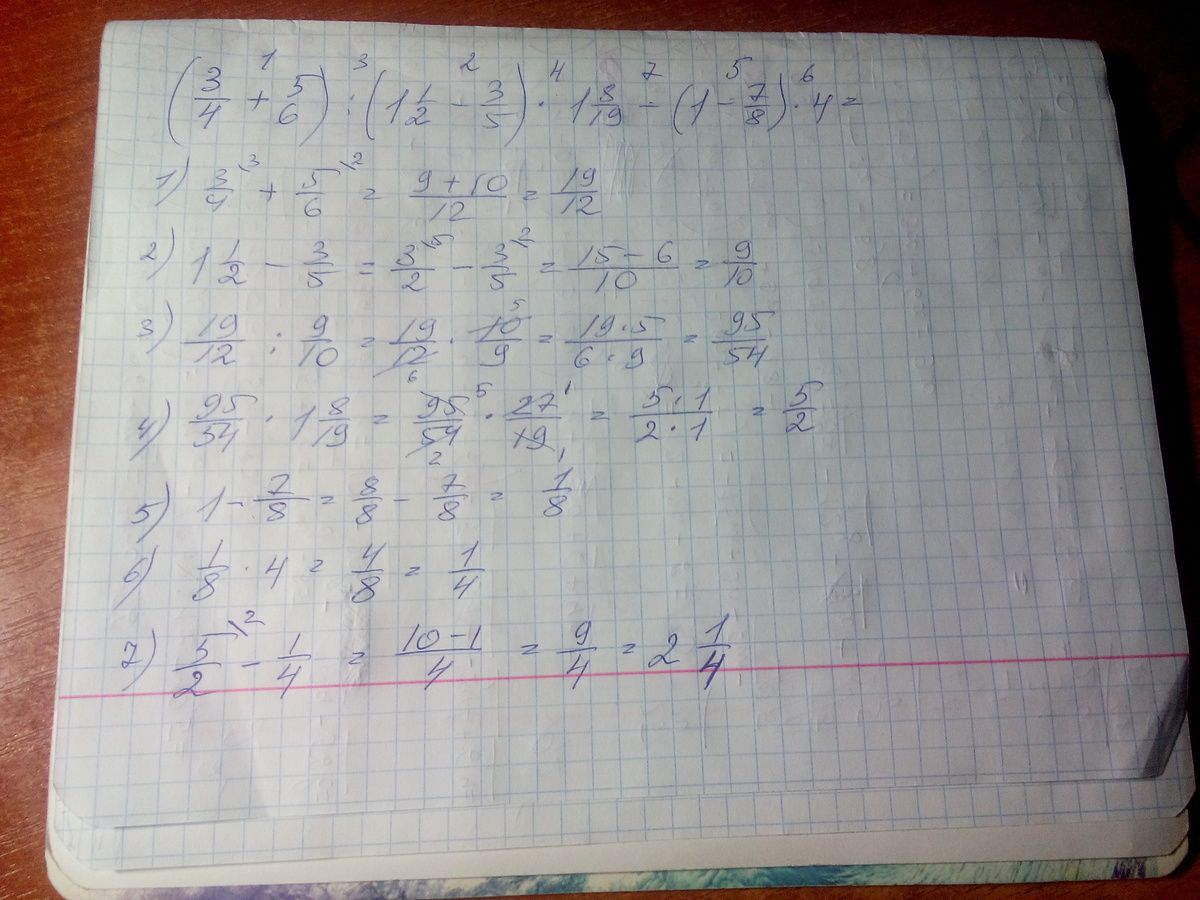 (3/4 + 5/6) : (1 1/2 - 3/5) · 1 8/19 - (1 - 7/8) · 4 =
1) 3/4 + 5/6 = 9+10/12 = 19/12
2) 1 1/2 - 3/5 = 3/2 - 3/5 = 15-6/10 = 9/10
3) 19/12 : 9/10 = 19/12 · 10/9 = 19·5/6·9 = 95/54
4) 95/54 · 1 8/19 = 95/54 · 27/19 = 5·1/2·1 = 5/2
5) 1 - 7/8 = 8/8 - 7/8 = 1/8
6) 1/8 · 4 = 4/8 = 1/4
7) 5/2 - 1/4 = 10-1/4 = 9/4 = 2 1/4